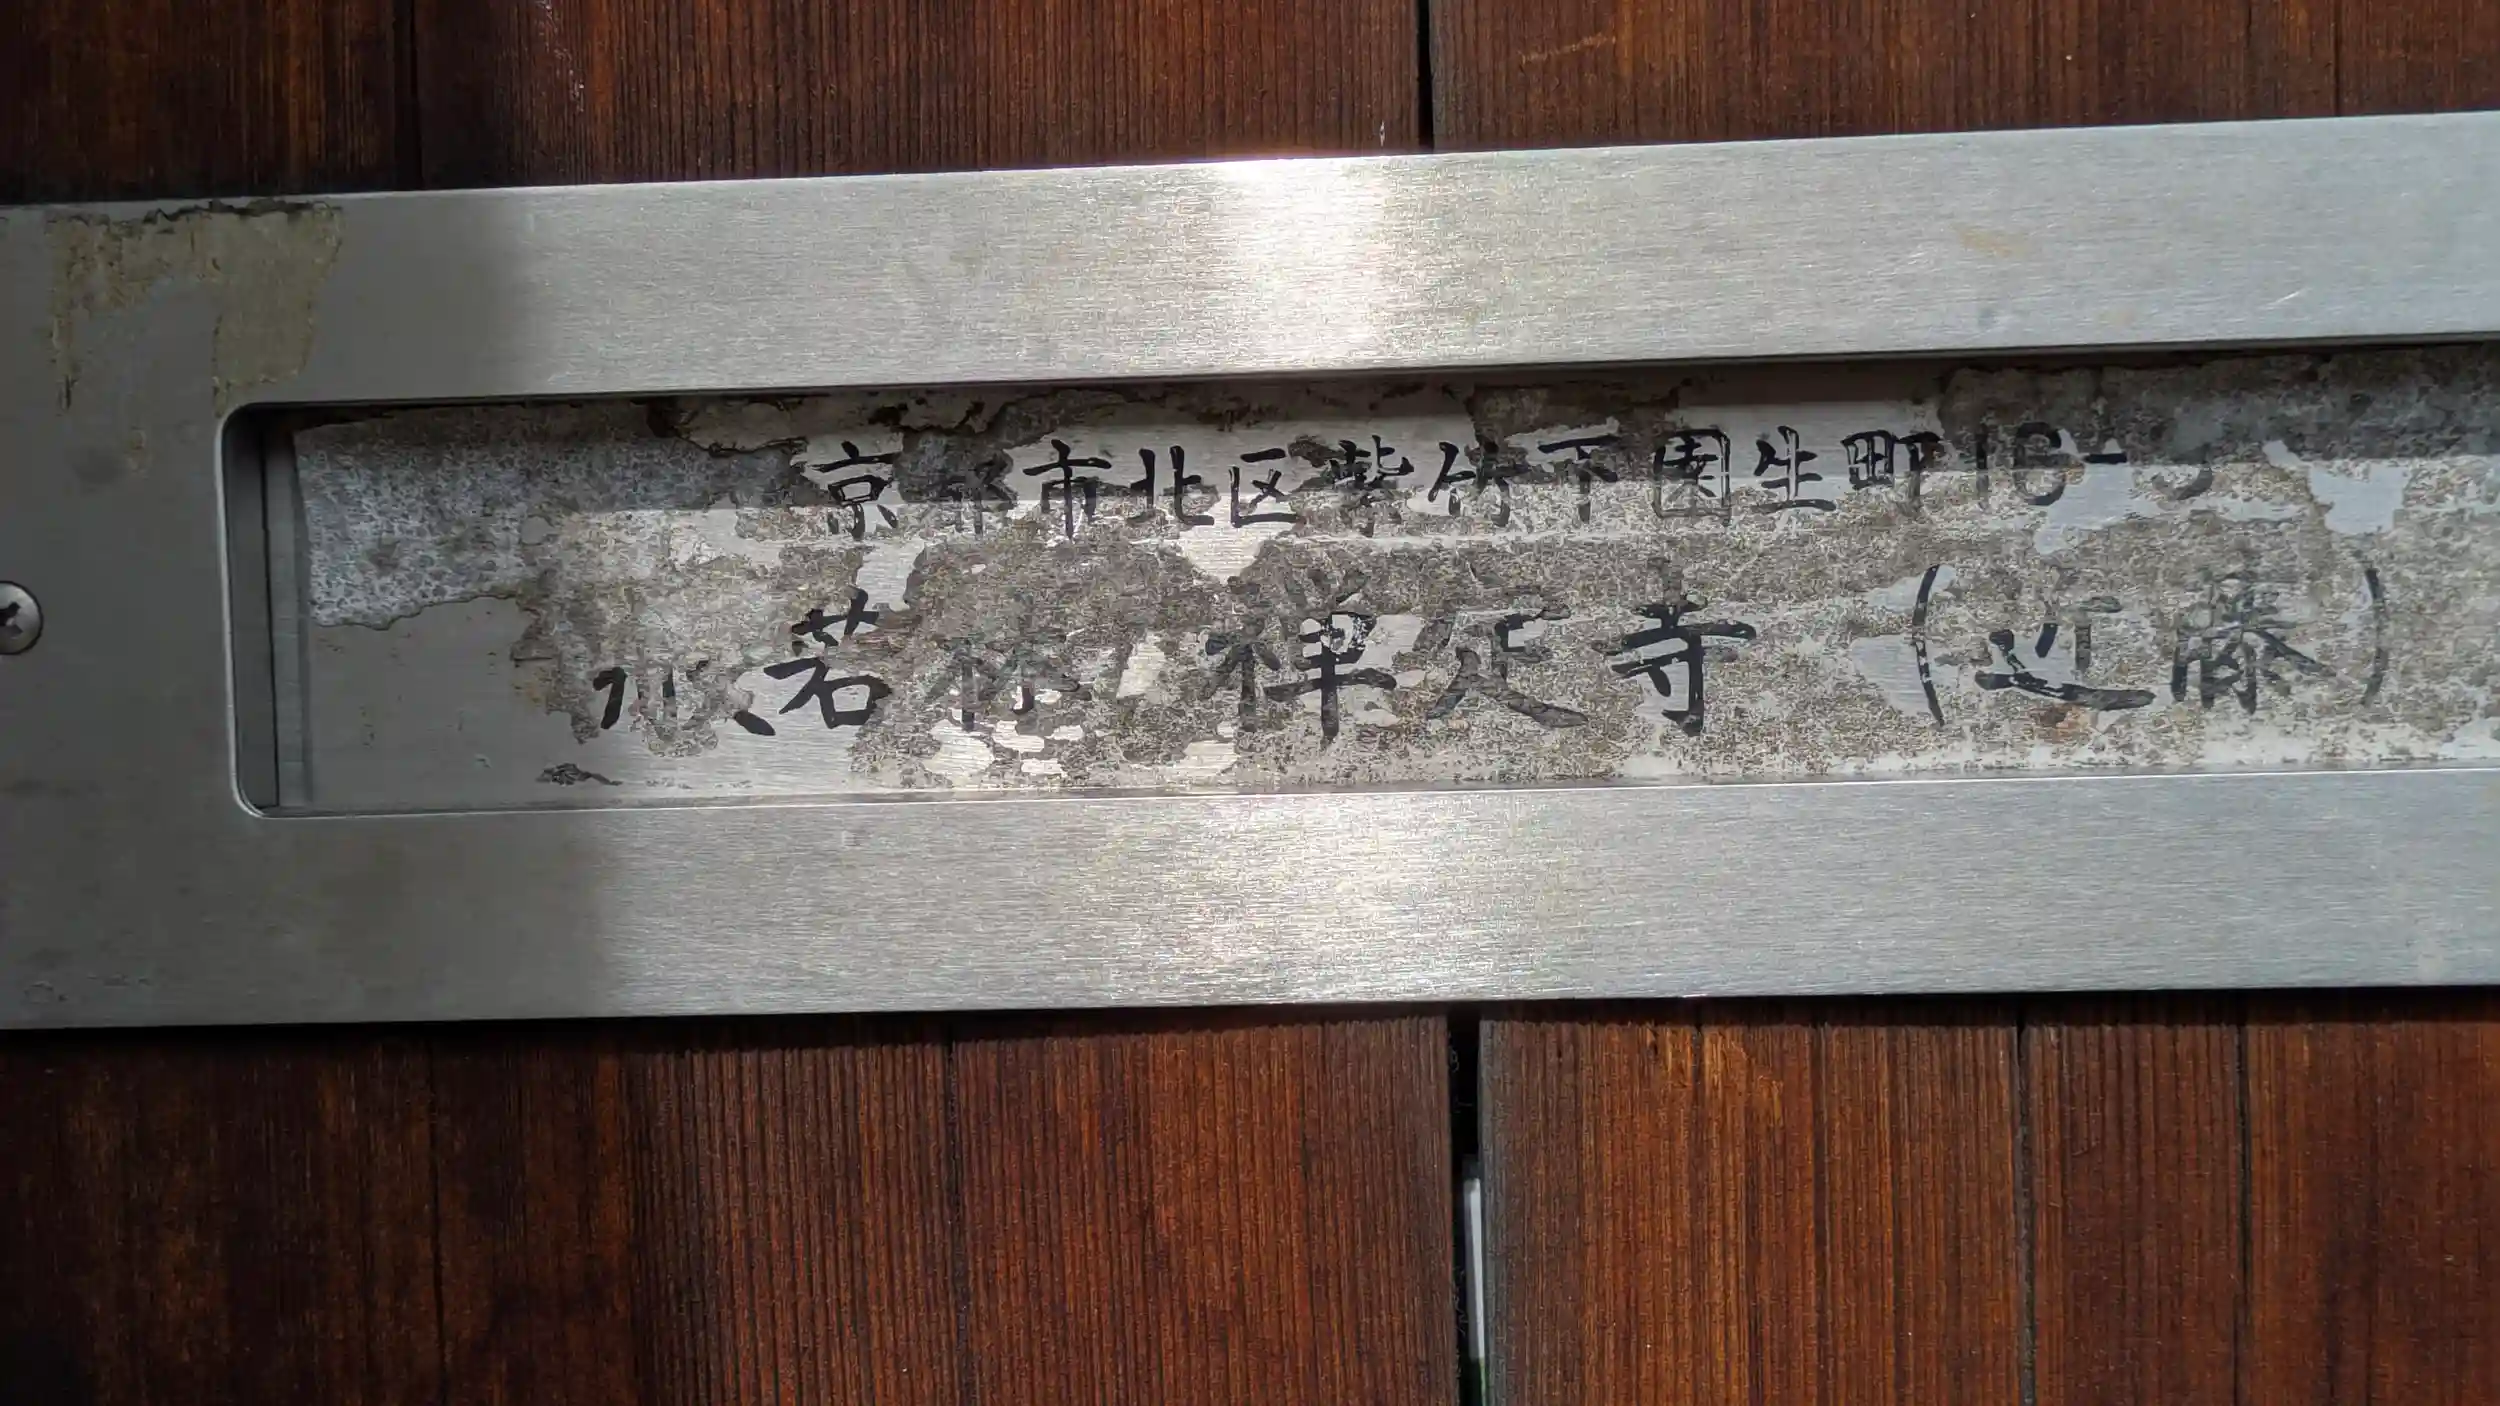 京都市北区紫竹下園生町16-3
般若林 禅定寺(近藤)